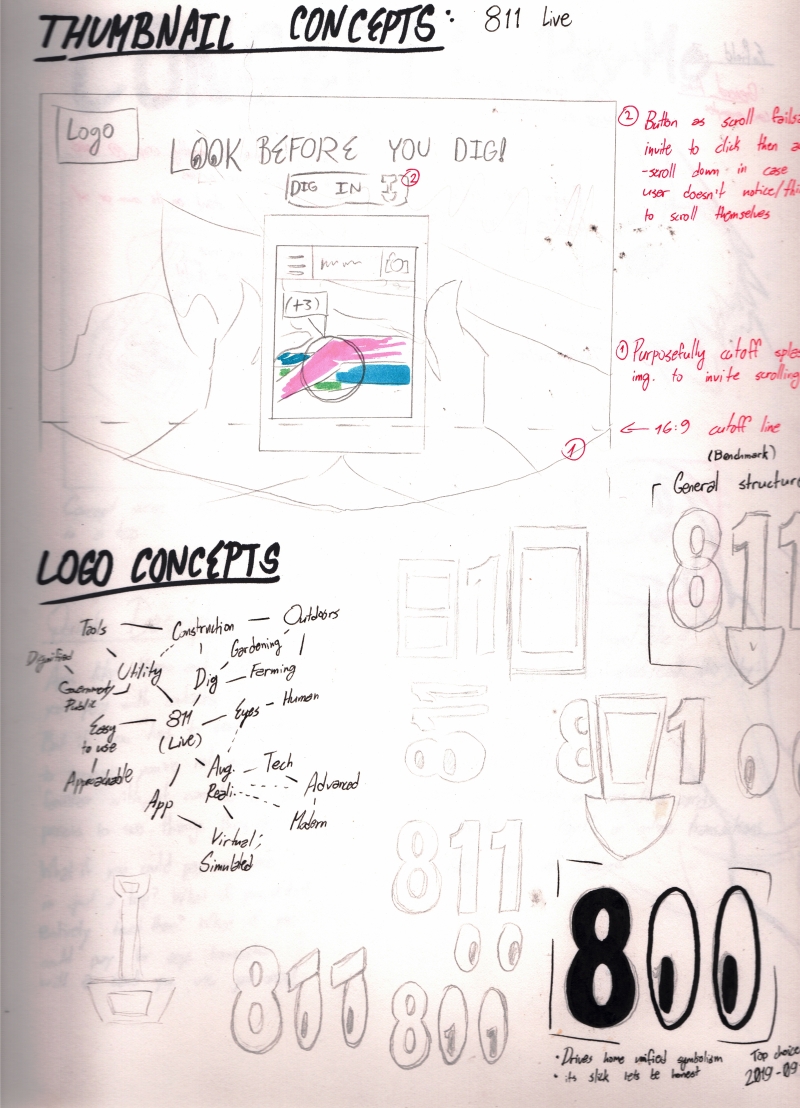 THUMBNAIL CONCEPTS: 811 Live
Logo
LOOK BEFORE YOU DIG!
DIG IN
2
(+3)
② Button as scroll
invite to click then
-scroll down in case
user doesn't
to scroll themselves
① Purposefully cutoff
img. to invite scrolling
← 16:9 cutoff line
(Benchmark)
1
General structure
811
LOGO CONCEPTS
Tools
Construction
Outdoors
Gardening
Dignified
Utility
Dig
Farming
Public
Human
Eyes
811
(Live)
Easy
to use
Approachable
Aug.
Reali.
Tech
Advanced
App
Modern
Virtual;
Simulated
811
811
81
811
811
811
8
• Drives home unified symbolism
• its slick lets be honest
Top choice
2019-09